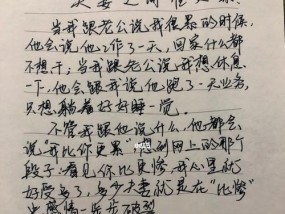 当我跟老公说我很累的时候,
他会说他工作了一天，回家什么都
不想干；当我跟老公说我想休息
一下，他会跟我说他跑了一天业务,
只想躺着好好睡一觉。
不管我跟他说什么，他都会
说“我比你更累”想到网上的那个
段子：看见你比更惨，我心里就
好受多了，多少夫妻就是在“比惨”